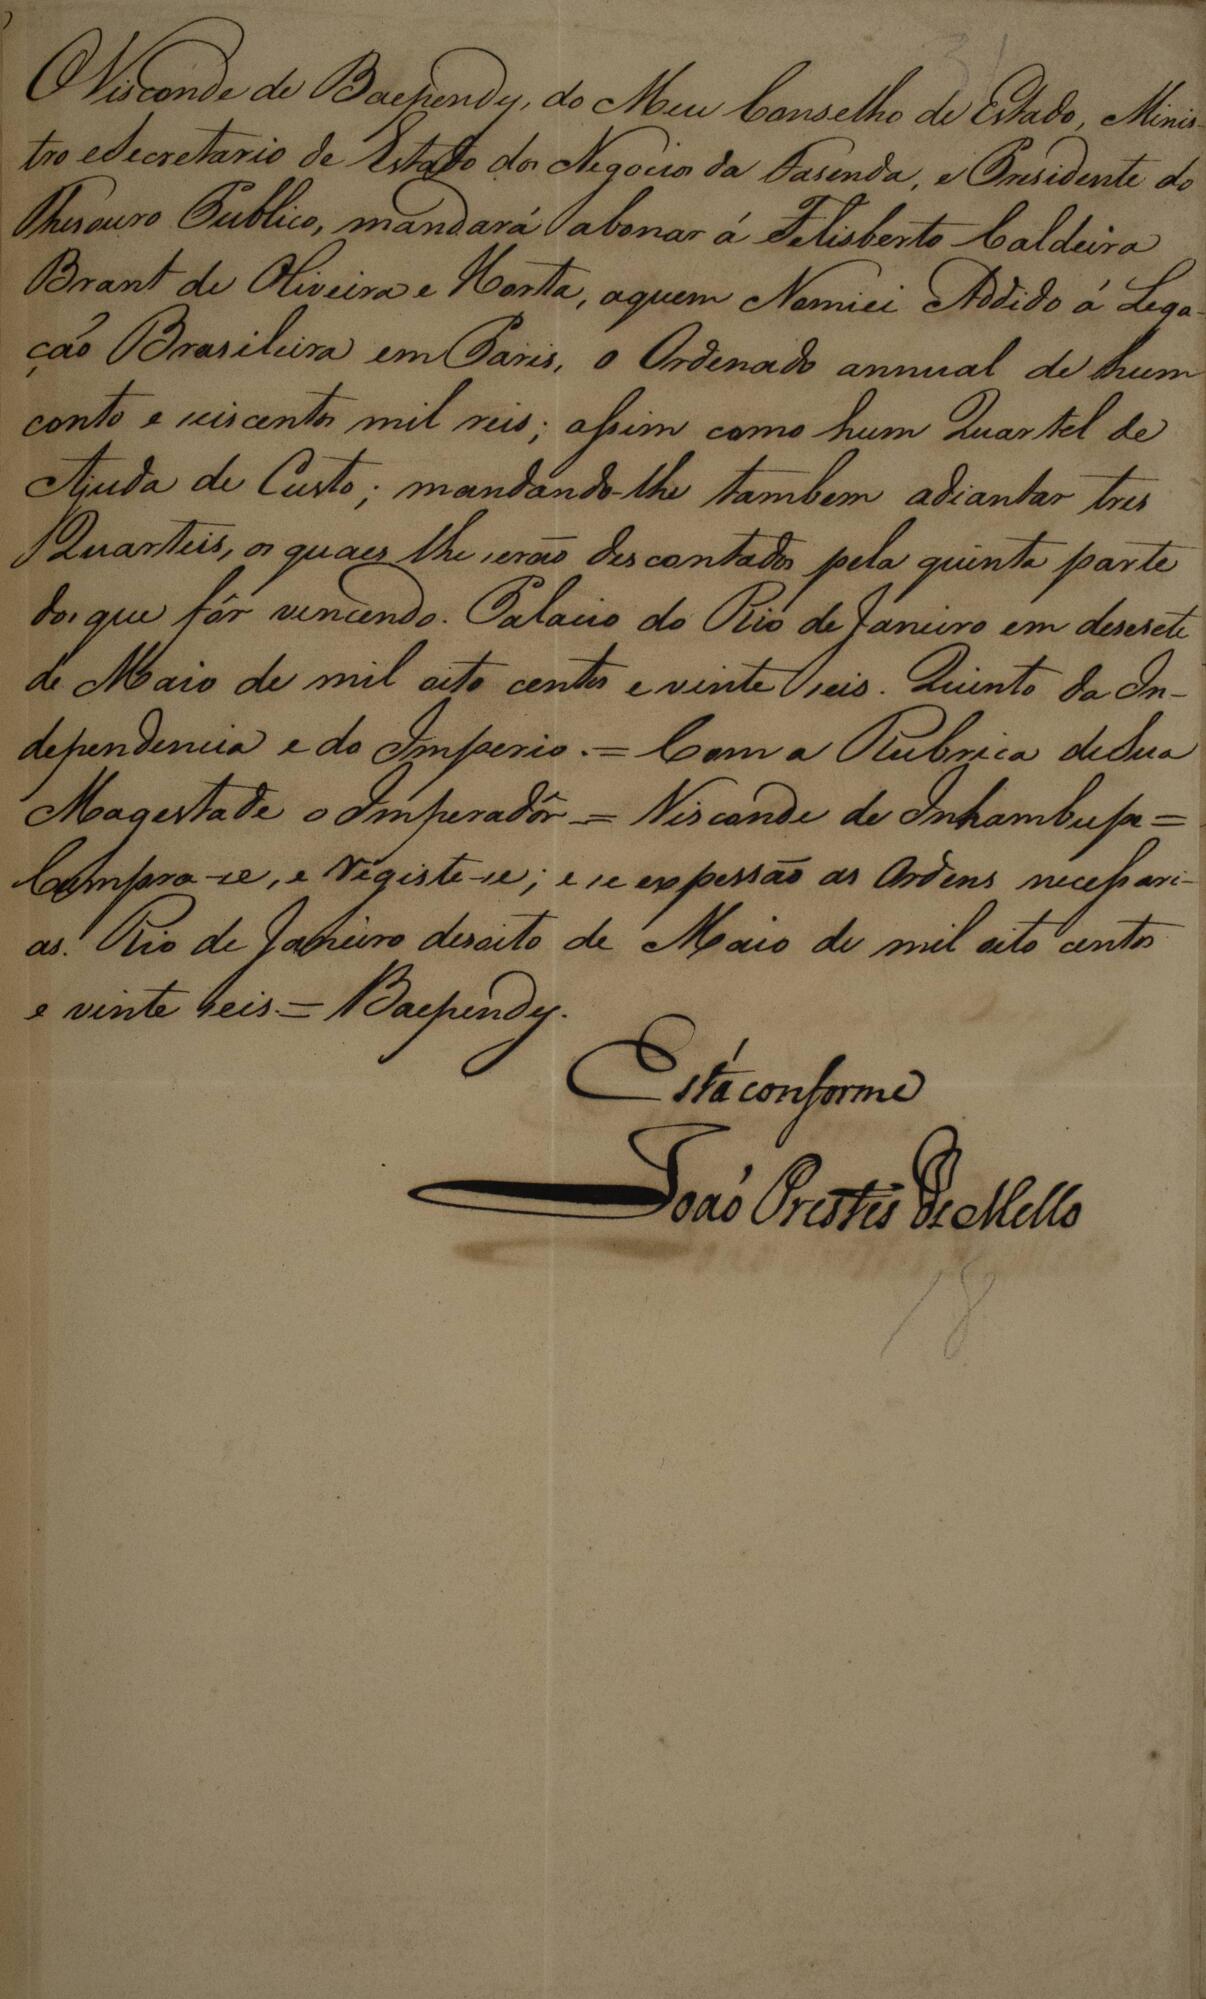 31
O Visconde de Baependy, do Meu Conselho de Estado, Minis-
tro e Secretario de Estado dos Negocios da Fasenda, e Presidente do
Thesouro Publico, mandará abonar á Felisberto Caldeira
Brant de Oliveira e Horta, aquem Nomiei Addido á Lega-
ção Brasileira em Paris, o Ordenado annual de hum
conto e seiscentos mil reis; assim como hum Quartel de
Ajuda de Custo; mandando-lhe tambem adiantar tres
Quarteis, os quaes lhe serão descontados pela quinta parte
dos que fôr vencendo. Palacio do Rio de Janeiro em desesete
de Maio de mil oito centos e vinte seis. Quinto da In-
dependencia e do Imperio. = Com a Rubrica de Sua
Magestade o Imperadôr = Visconde de Inhambupe =
Cumpra-se, e registe-se; e se expessão as Ordens necessari-
as. Rio de Janeiro desoito de Maio de mil oito centos
e vinte seis. = Baependy.
Está conforme
João Prestes de Mello
18